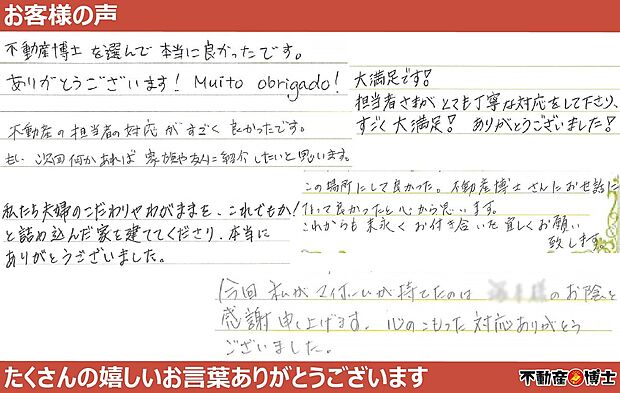 お客様の声
不動産博士を選んで本当に良かったです。
ありがとうございます! Muito obrigado!
大満足です!
担当者さまがとても丁寧な対応をして下さり、
すごく大満足! ありがとうございました!
不動産の担当者の対応がすごく良かったです。
もし、次回何かあれば家族や友人に紹介したいと思います。
この場所にして良かった。不動産博士さんにお世話に
なって良かったと心から思います。
これからも末永くお付き合いた宜しくお願い
致します。
私たち夫婦のこだわりやわがままを、これでもか!
と詰め込んだ家を建ててくださり、本当に
ありがとうございました。
今回私がマイホームが持てたのは
のお陰と
感謝申し上げます。心のこもった対応ありがとう
ございました。
たくさんの嬉しいお言葉ありがとうございます
不動産博士